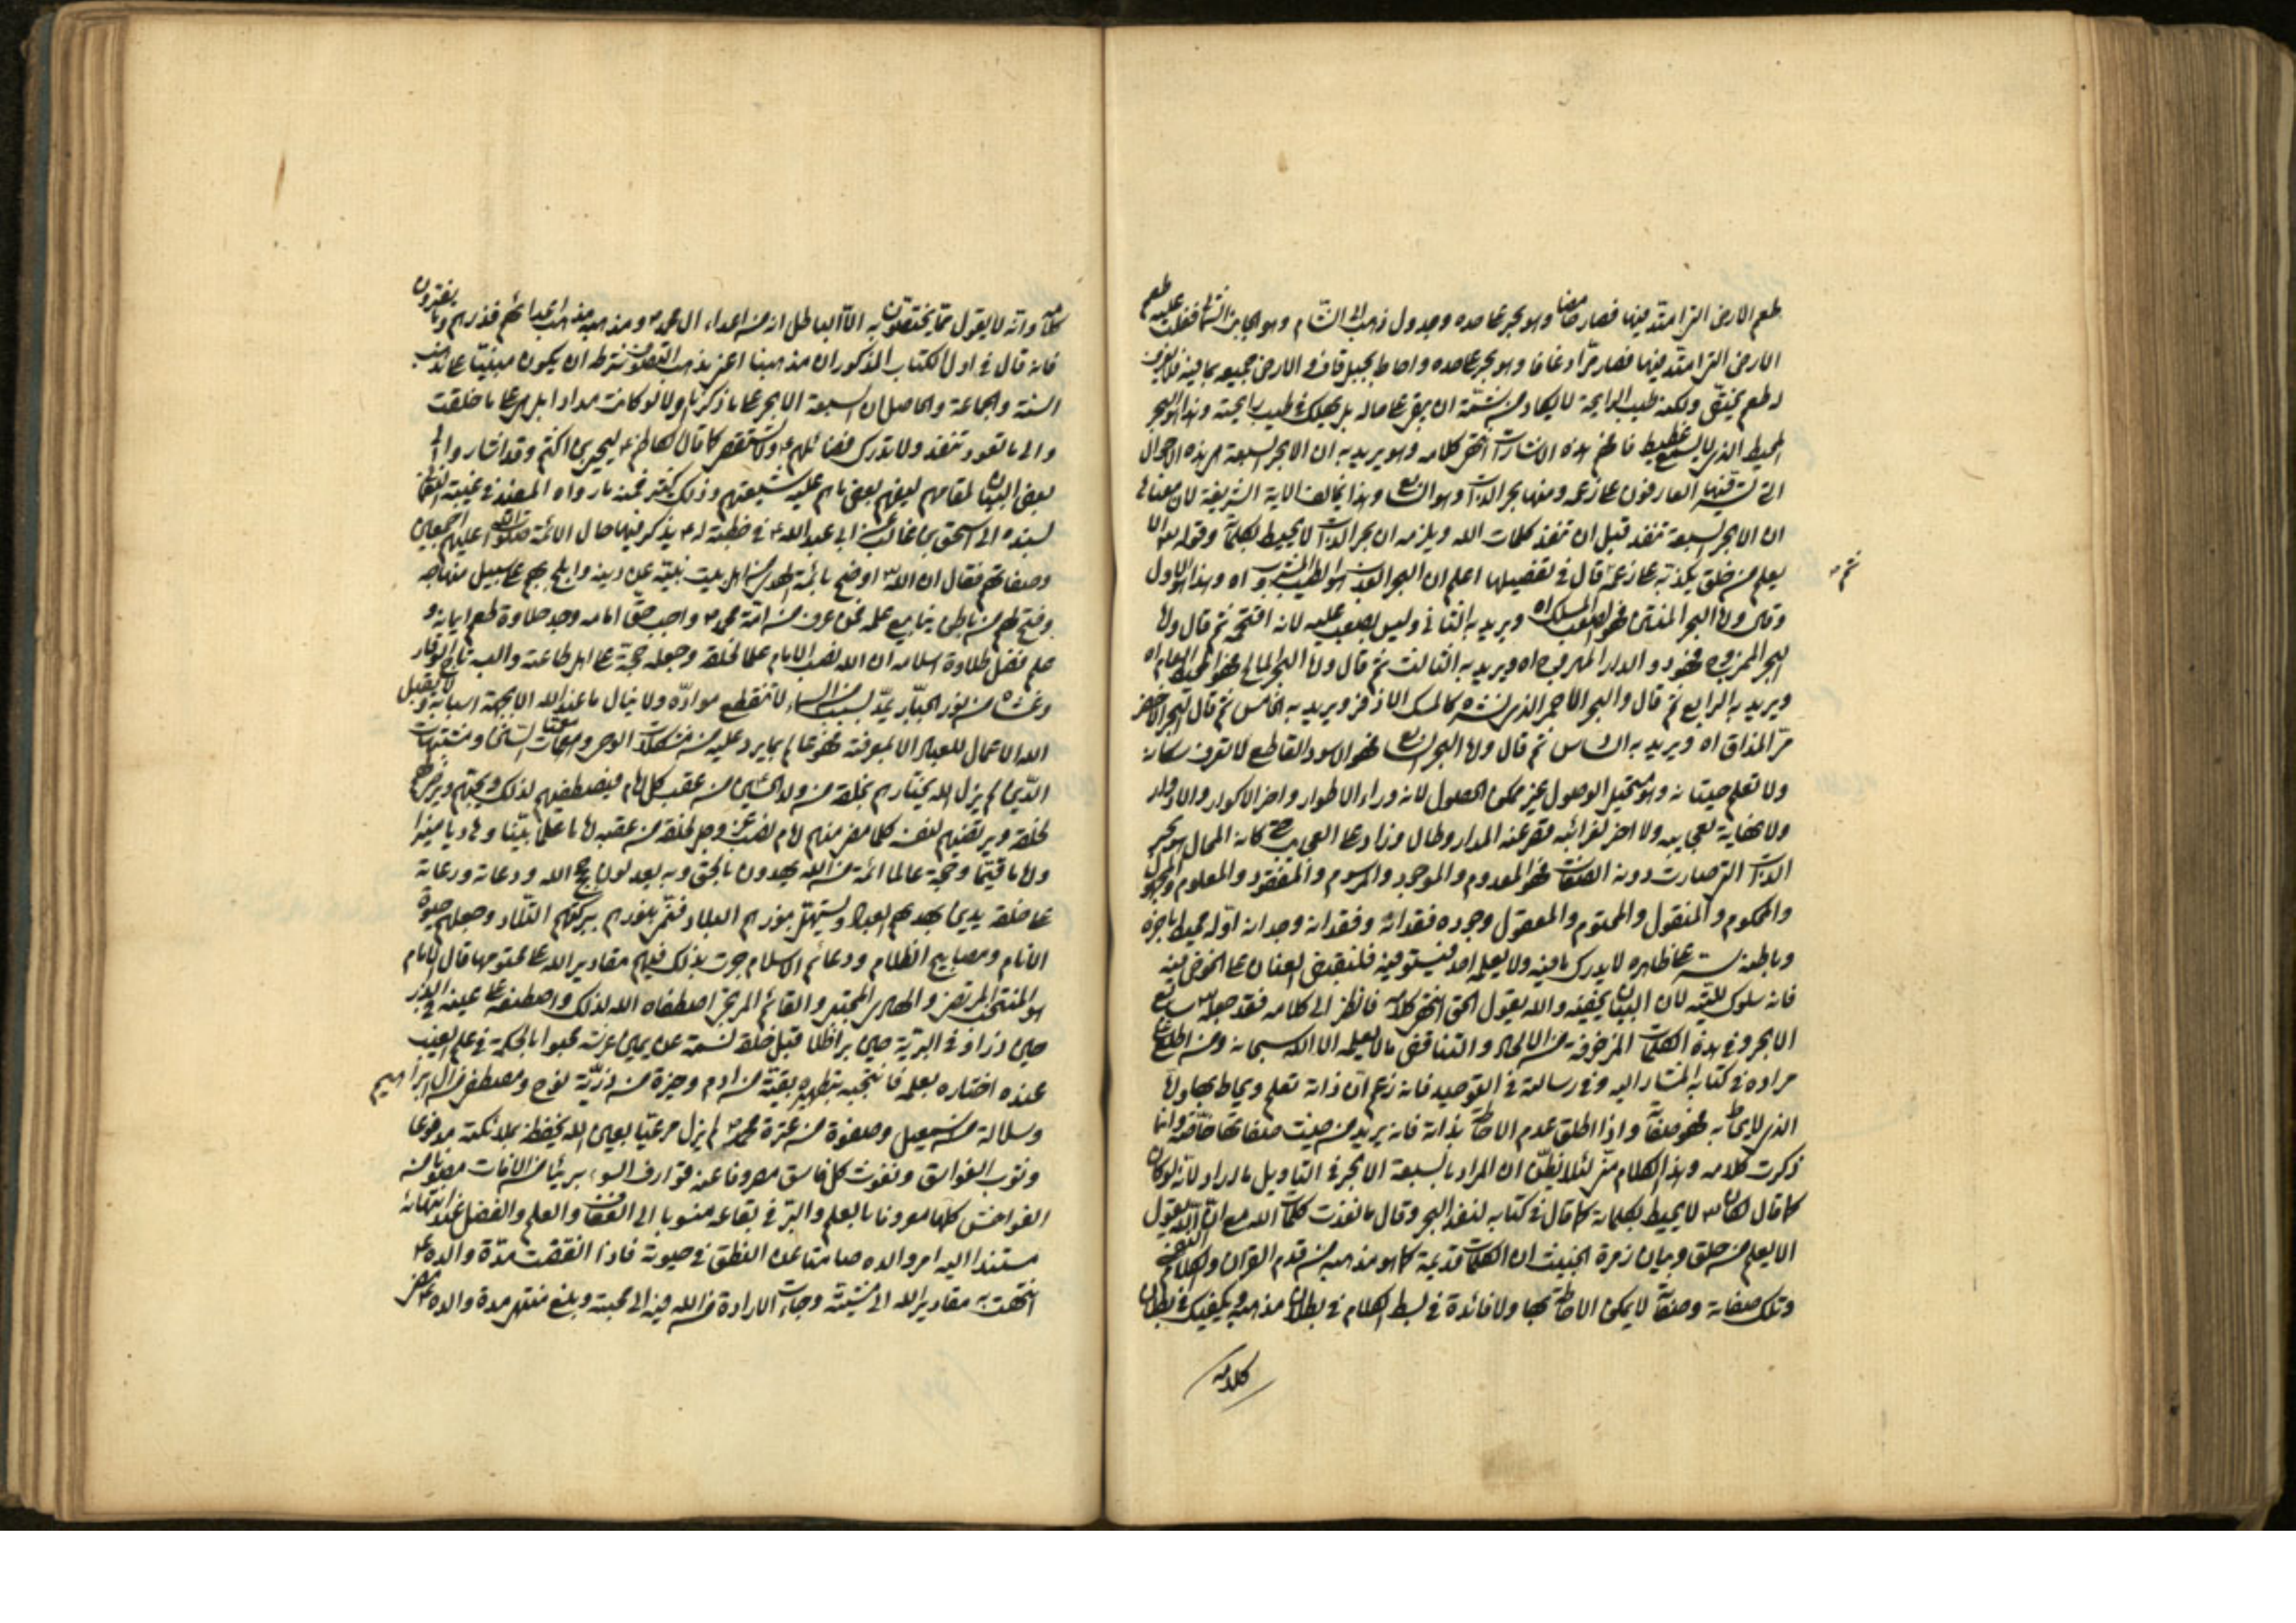 طعم الارض التى امتد فيها فصار حامضا وهو بحر على حده وجدول ذهب الى الشام وهو الجانب الشمالى فغلب عليه طعم
الارض التى امتد فيها فصار مرا زعافا وهو بحر على حده واحاط بجبل قاف والارض جميعه بما فيه فلا يعرف
له طعم يختص ولكنه طيب الرايحة لا يكاد من شمّه ان يبقى على حاله بل يهلك في طيب رايحته وهذا هو البحر
المحيط الذى لا يسمع غطيط فافهم هذه الاشارات انتهى كلامه وهو يريد به ان الابحر السبعة هى هذه الاحوال
التى العارفون على زعمه ومنها بحر الذات وهو السابع وهذا يخالف الاية الشريفة لان معناها
ان الابحر السبعة تنفد قبل ان تنفد كلمات الله ويلزمه ان بحر الذات لا يحيط بكلماته وقوله الا
يعلم من خلق يكذبه على زعمه ثم قال في تفصيلها اعلم ان البحر العذب هو الطيب المشروب اه وهذا هو الاول
وقال واما البحر المنتن فهو الصعب المسلك اه ويريد به الثانى وليس بصعب عليه لانه اقتحمه ثم قال واما
البحر الممزوج فهو ذو الدر الممروج اه ويريد به الثالث ثم قال واما البحر المالح فهو المحيط العام اه
ويريد به الرابع ثم قال والبحر الاحمر الذى نشره كالمسك الاذفر ويريد به الخامس ثم قال والبحر الاخضر
مرّ المذاق اه ويريد به السادس ثم قال واما البحر السابع فهو الاسود القاطع لا تعرف سكانه
ولا تعلم حيتانه وهو مستحيل الوصول غير ممكن الحصول لانه وراء الاطوار واخر الاكوار والادوار
ولا نهاية لعجايبه ولا اخر لغرائبه قصر عنه المدار وطال وزاد على العجايب حتى كانه المحال هو بحر
الذات التى حارت دونه الصفات فهو المعدوم والموجود والمرسوم والمفقود والمعلوم والمجهول
والمحكوم والمنقول والمحتوم والمعقول وجوده فقدانه وفقدانه وجدانه اوّله محيط باخره
وباطنه مستو على ظاهره لا يدرك ما فيه ولا يعلمه احد فيستوفيه فلنقبض العنان على الخوض فيه
فانه سلوك التيه لان البيان يخفيه والله يقول الحق انتهى كلامه فانظر الى كلامه فقد جعله سابع
الابحر وفي هذه الكلمات المزخرفة من الالحاد والتناقض ما لا يعلمه الا الله سبحانه ومن اطلع على
مراده في كتابه المشار اليه وفي رسالته في التوحيد فانه زعم ان ذاته تعلم ويحاط بها واما
الذى لا يحاط به فهو صفاته واذا اطلق عدم الاحاطة بذاته فانه يريد من حيث صفاتها خاصّة وانما
ذكرت كلامه وهذا الكلام منّى لئلا يظن ان المراد بالسبعة الابحر في التاويل ما اراد لانه لو كان
كما قال لكان لا يحيط بكلماته كما قال في كتابه لنفد البحر وقال ما نفدت كلمات الله مع ان الله يقول
الا يعلم من خلق وبيان زمرة الخبيث ان الكلمات قديمة كما هو مذهبه من قدم القران والكلام النفسى
وتلك صفاته وصفاته لا يمكن الاحاطة بها ولا فائدة في بسط الكلام في بطلان مذهبه ويكفيك في بطلان
كلامه
كلامه وانه لا يقول مما يختصون به الا الباطل انه من اعداء ال محمد ومذهبه مذهب اعدائهم فذرهم وما يفترون
فانه قال في اول الكتاب المذكور ان مذهبنا اعنى مذهب التصوف شرطه ان يكون مبنيّا على مذهب
السنة والجماعة والحاصل ان السبعة الابحر على ما ذكرنا اولا لو كانت مدادا بل هى على ما خلقت
والى ما تعود تنفد ولا تدرك فضائلهم ولا تستقصى كما قال الكاظم ليحيى بن اكثم وقد اشاروا الى
بعض البيان لمقامهم ليعرفهم بعض ما هم عليه شيعتهم وذلك كثير فمنه ما رواه المفيد في غيبة النعمانى
بسنده الى اسحق بن غالب عن ابى عبد الله في خطبة له يذكر فيها حال الائمة صلوات الله عليهم اجمعين
وصفاتهم فقال ان الله اوضح بائمة الهدى من اهل بيت نبيّه عن دينه وابلج بهم عن سبيل منهاجه
وفتح لهم من باطن ينابيع علمه فمن عرف من امة محمد واجب حقّ امامه وجد حلاوة طعم ايمانه و
علم فضل طلاوة اسلامه ان الله نصب الامام علما لخلقه وجعله حجة على اهل طاعته والبسه تاج الوقار
وغشاه من نور الجبّار يمدّ بسبب من السماء لا تنقطع موادّه ولا ينال ما عند الله الا بجهة اسبابه ولا يقبل
الله الاعمال للعباد الا بمعرفته فهو عالم بما يرد عليه من مشكلات الوحى ومعميات السنن ومشتبهات
الدّين لم يزل الله يختارهم لخلقه من ولد الحسين من عقب كل امام فيصطفيهم لذلك ويجتبيهم ويرضى بهم
لخلقه ويرتضيهم لنفسه كلما مضى منهم امام نصب عز وجل لخلقه من عقبه اماما علما بيّنا وهاديا منيرا
واماما قيّما وحجة عالما ائمة من الله يهدون بالحق وبه يعدلون حجج الله ودعاته ورعاته
على خلقه يدين بهديهم العباد ويستهلّ بنورهم البلاد فتنمى ببركتهم التلاد وجعلهم حيوة
الانام ومصابيح الظلام ودعائم الاسلام جرت بذلك فيهم مقادير الله على محتومها فالامام
هو المنتجب المرتضى والهادى المجتبى والقائم المرتجى اصطفاه الله لذلك واصطنعه على عينه في الذر
حين ذراه وفي البريّة حين براه ظلا قبل خلقه نسمة عن يمين عرشه محبوا بالحكمة في علم الغيب
عنده اختاره بعلمه فانتجبه بتطهيره بقية من ادم وخيرة من ذريّة نوح ومصطفى من ال ابراهيم
وسلالة من اسمعيل وصفوة من عترة محمد لم يزل مرعيّا بعين الله يحفظه بملائكته مدفوعا
وقوب الغواسق ونفوث كل فاسق مصروفا عنه قوارف السوء بريئا من الافات مصونا من
الفواحش كلها معروفا بالعلم والبرّ في يفاعه منسوبا الى العفاف والعلم والفضل عند انتهائه
مستندا اليه امر والده صامتا عن النطق في حيوته فاذا انقضت مدّة والده
انتهت به مقادير الله الى مشيّته وجاءت الارادة من الله فيه الى محبته وبلغ منتهى مدة والده فمضى